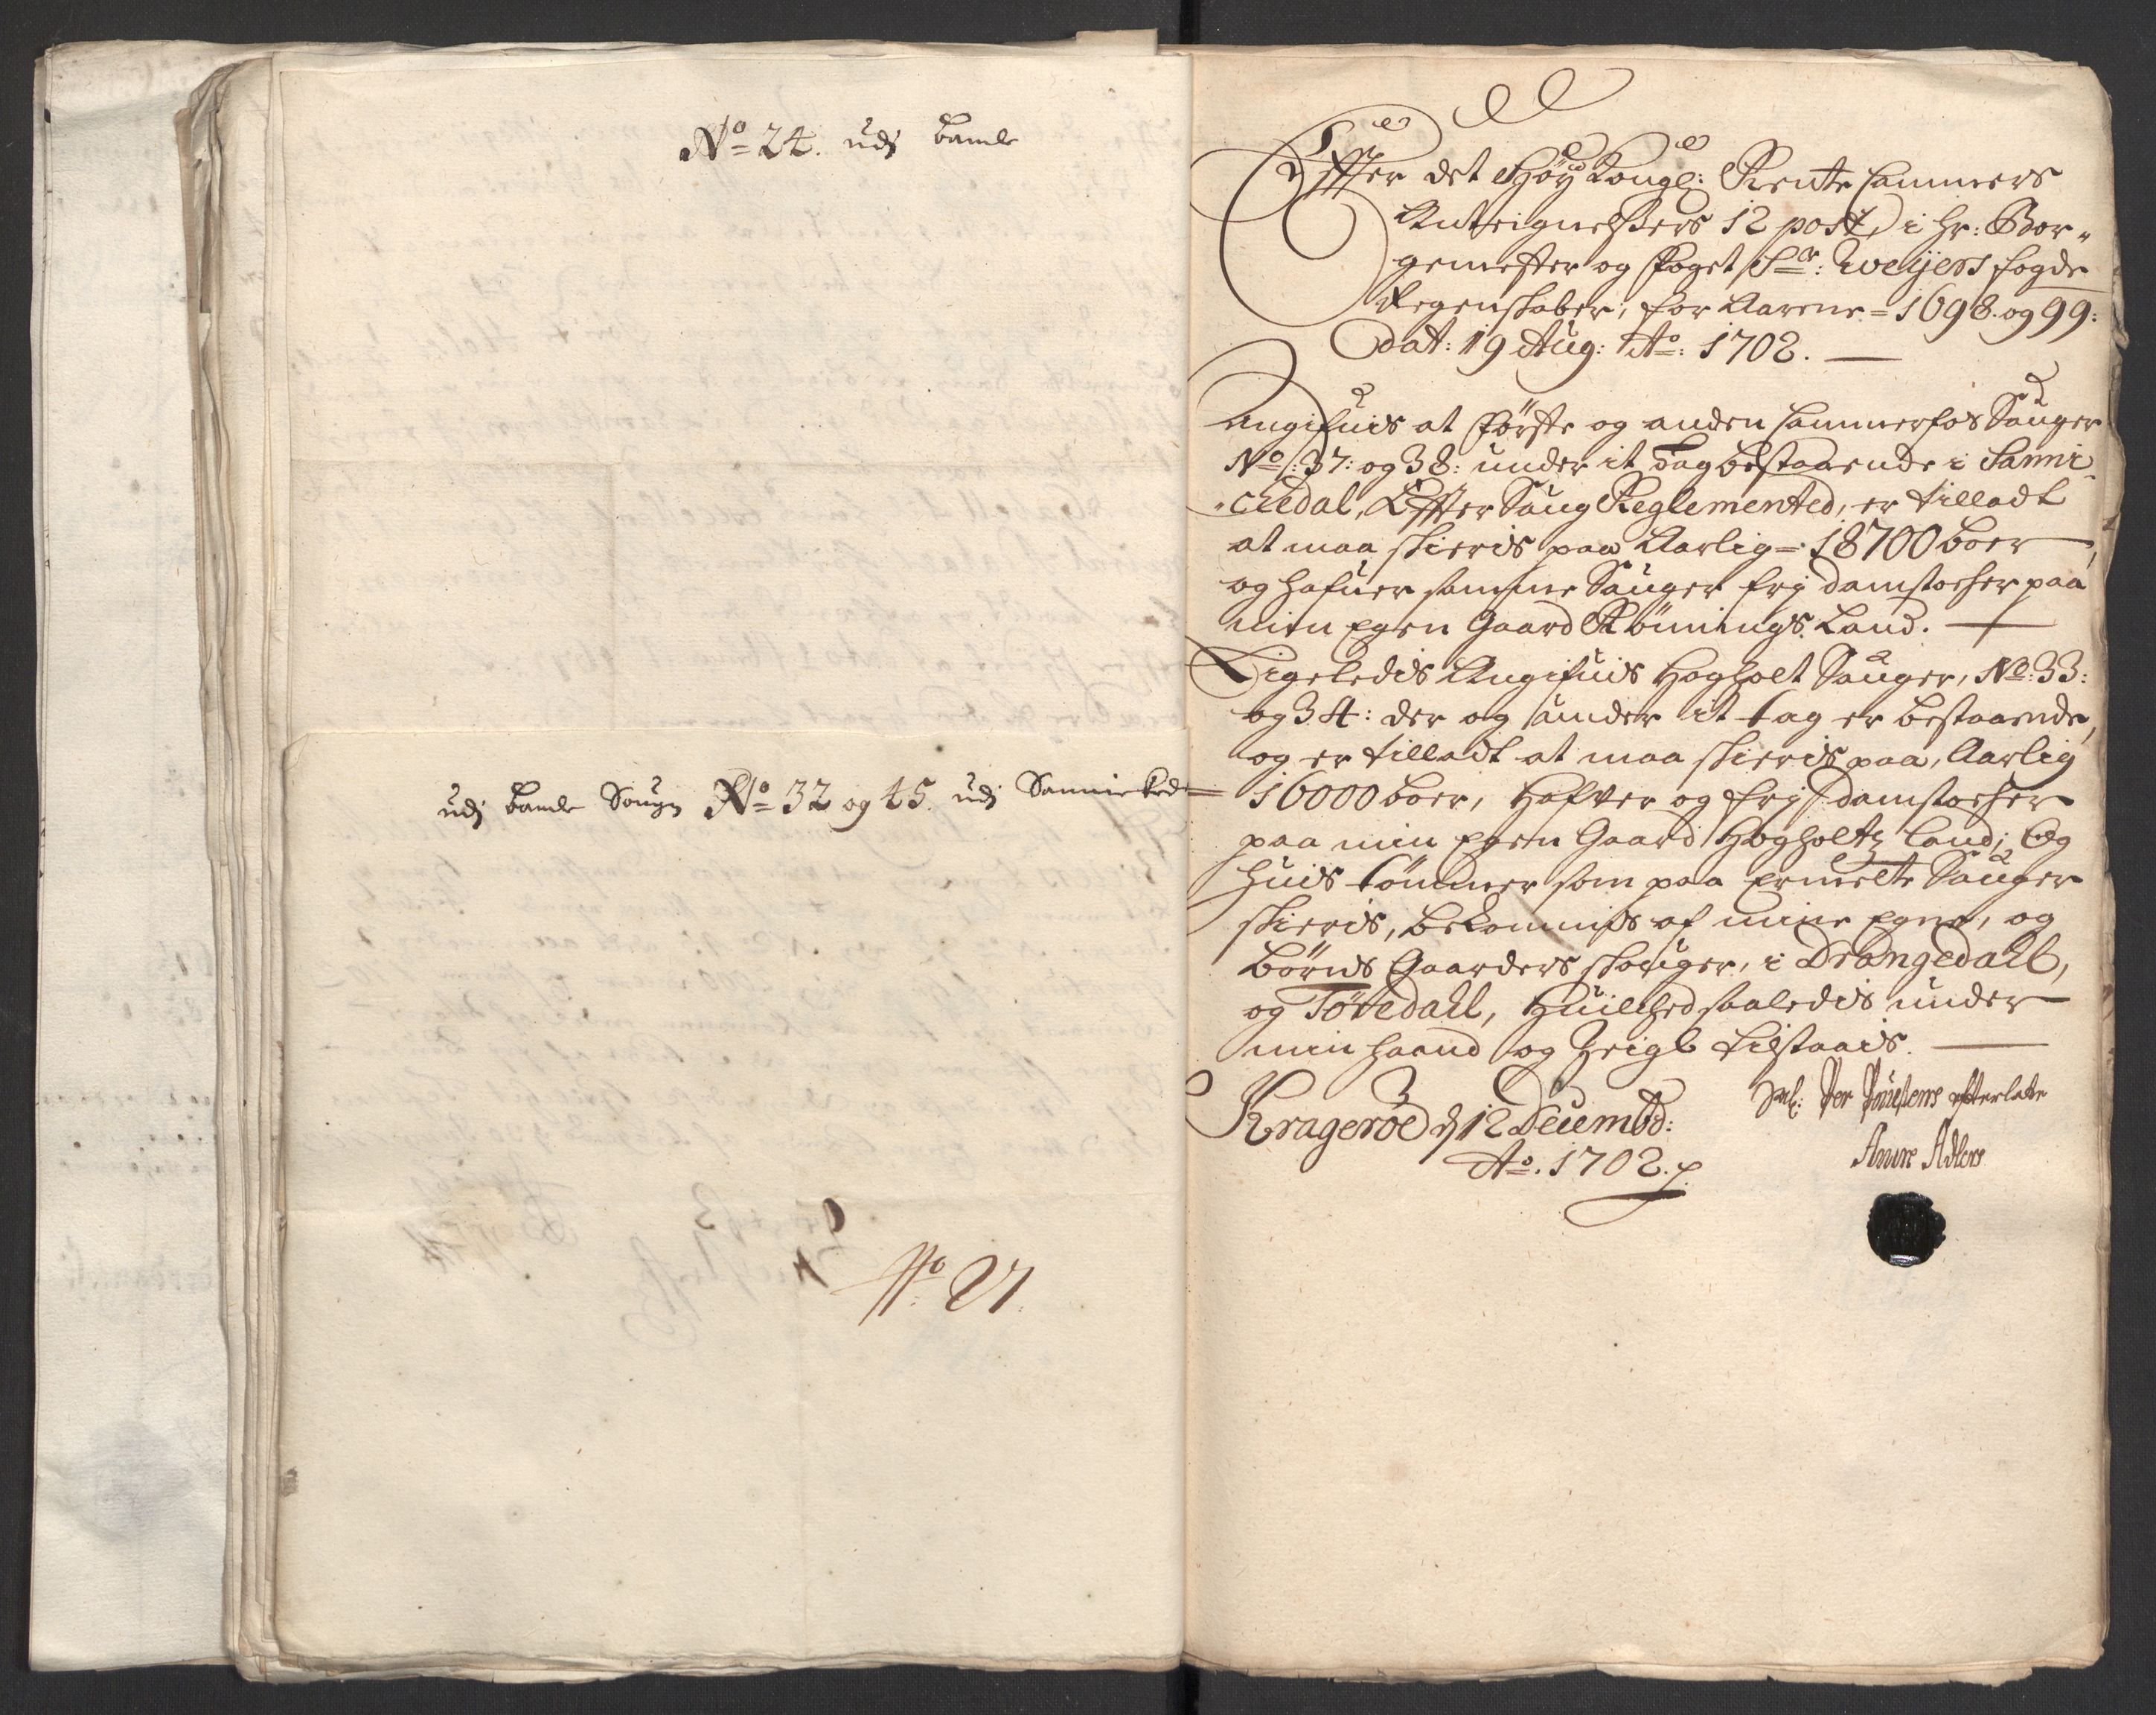 No 24. udj Bamle
udj Bamle Sougn No 32 og 45. udj Sannickedr
No 27.
Effter det Höy Kongl: Rente Cammers
Anteignelßers 12 post, i hr: Bor„
gemester og Foget Sr: Weyers fogde
Regenskaber, for Aarene = 1698. og 99:
dat: 19 Aug: Ao: 1702.
Angifuis at Förste og anden Cammerfos Sauger
No: 37: og 38: under it Tag bestaaende i Sanni„
„chedal, Effter Saug Reglemented, er tilladt
at maa skieris paa Aarlig = 18700 boer,
og hafuer samme Sauger frj damstocher paa
min Egen Gaard Rönnings Land.
Ligeledis Angifuis Hogholt Sauger, No: 33:
og 34: der og under it tag er bestaaende,
og er tilladt at maa skieris paa, Aarlig
16000 boer, Hafver og frj damstocher
paa min Egen Gaard Hogholtz Land; Og
huis tömmer som paa Ermelte Sauger
skieris, bekommis af mine Egne, og
Börns Gaarders skouger, i Drangedall,
og Törredall, Huilched saaledis under
min haand og Zeigl tilstaais.
Kragerøe d 12 Decembr:
Ao. 1702.
Sal: Per Pouelsens efterlatte
Anne Adlers